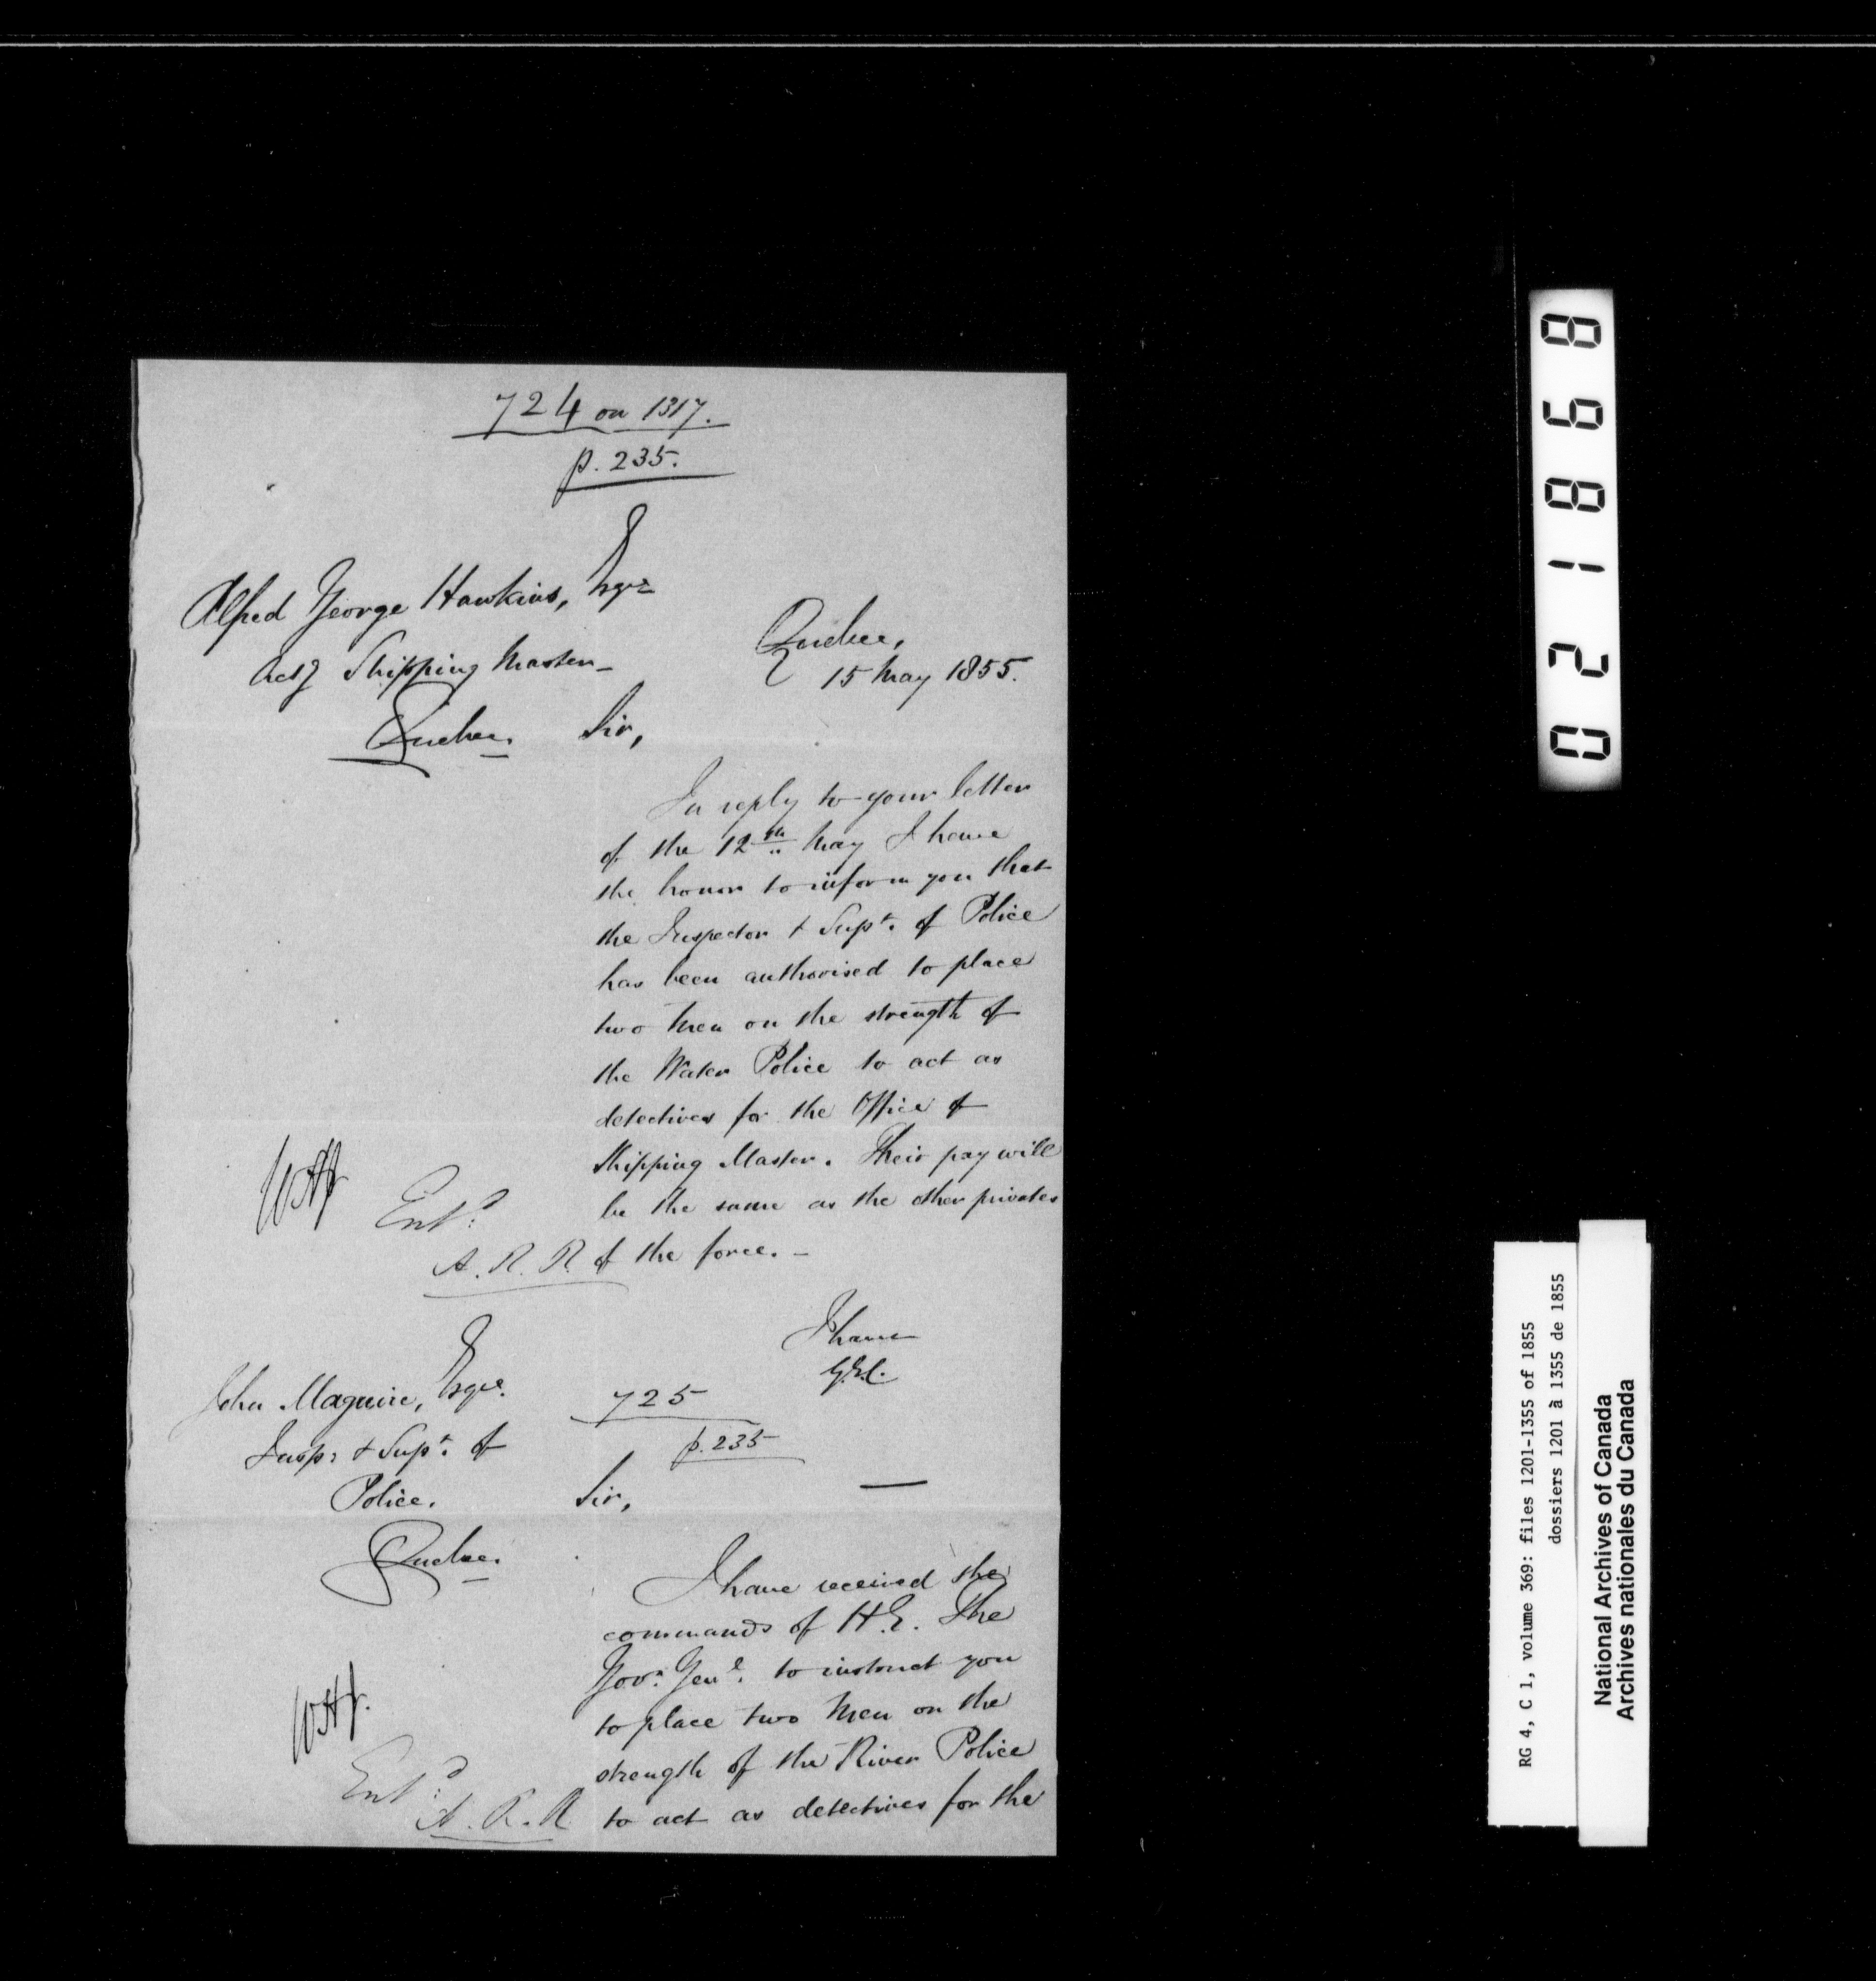 724 on 1317.
p. 235.
Alfred George Hawkins, Esqre
Actg Shipping Master
Quebec.
Quebec,
15 May 1855.
Sir,
In reply to your letter
of the 12th May I have
the honor to inform you that
the Inspector & Supt. of Police
has been authorised to place
two men on the strength of
the Water Police to act as
detectives for the Office of
Shipping Master. Their pay will
be the same as the other privates
of the force. -
Entd
A. R. R.
I have
John Maguire, Esqre.
Insp: & Supt. of
Police.
Quebec.
725
p. 235
Sir,
I have received the
commands of H.E. The
Govr. Genl. to instruct you
to place two men on the
strength of the River Police
to act as detectives for the
Entd:
A. R. R
021868
RG 4, C 1, volume 369: files 1201-1355 of 1855
dossiers 1201 à 1355 de 1855
National Archives of Canada
Archives nationales du Canada